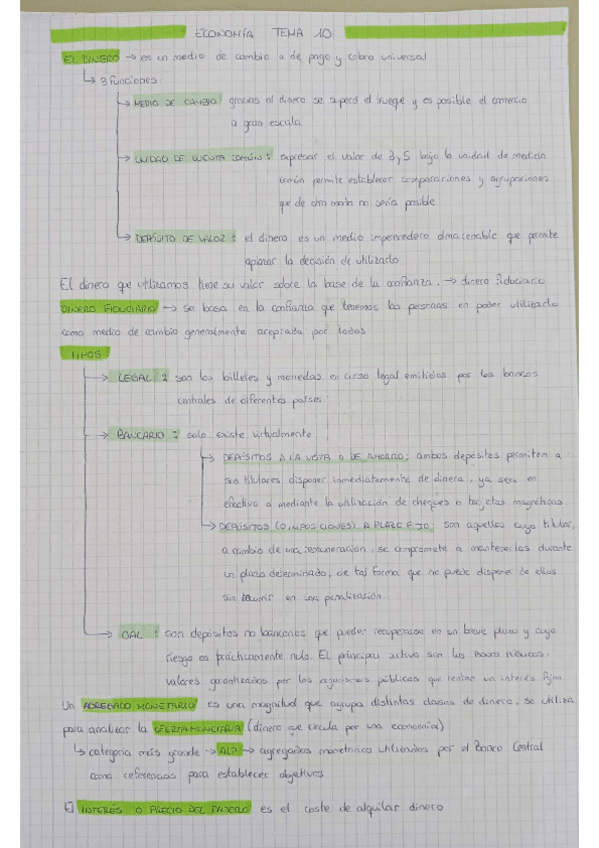 ECONOMÍA TEMA 10
EL DINERO → es un medio de cambio o de pago y cobro universal
↳ 3 funciones:
→ MEDIO DE CAMBIO: gracias al dinero se superó el trueque y es posible el comercio
a gran escala
→ UNIDAD DE CUENTA COMÚN: expresar el valor de B y S bajo la unidad de medida
común permite establecer comparaciones y agrupaciones
que de otro modo no sería posible
→ DEPÓSITO DE VALOR: el dinero es un medio imperecedero almacenable que permite
aplazar la decisión de utilizarlo.
El dinero que utilizamos tiene su valor sobre la base de la confianza. → dinero fiduciario
DINERO FIDUCIARIO → se basa en la confianza que tenemos las personas en poder utilizarlo
como medio de cambio generalmente aceptado por todos
TIPOS
→ LEGAL: son los billetes y monedas en curso legal emitidos por los bancos
centrales de diferentes países
→ BANCARIO: solo existe virtualmente
→ DEPÓSITOS A LA VISTA O DE AHORRO: ambos depósitos permiten a
sus titulares disponer inmediatamente de dinero, ya sea en
efectivo o mediante la utilización de cheques o tarjetas magnéticas
→ DEPÓSITOS (O IMPOSICIONES) A PLAZO FIJO: son aquellos cuyo titular,
a cambio de una remuneración, se compromete a mantenerlos durante
un plazo determinado, de tal forma que no puede disponer de ellos
sin incurrir en una penalización.
→ OAL: son depósitos no bancarios que pueden recuperarse en un breve plazo y cuyo
riesgo es prácticamente nulo. El principal activo son los
valores garantizados por los organismos públicos que rentan un interés fijo
Un AGREGADO MONETARIO es una magnitud que agrupa distintas clases de dinero, se utiliza
para analizar la OFERTA MONETARIA (dinero que circula por una economía)
↳ categoría más grande → ALP → agregados monetarios utilizados por el Banco Central
como referencias para establecer objetivos
El INTERÉS O PRECIO DEL DINERO es el coste de alquilar dinero